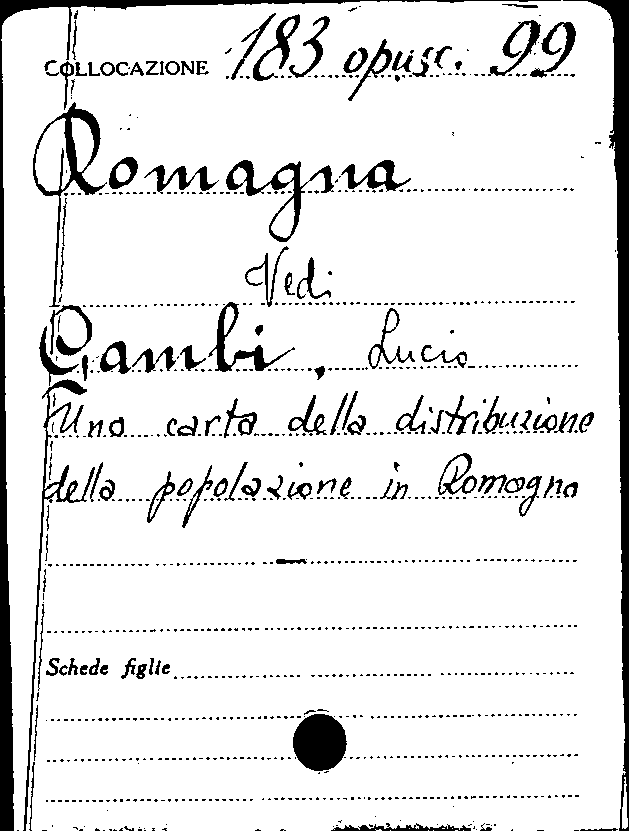 COLLOCAZIONE 183 opusc. 99
Romagna
Vedi
Gambi, Lucio
Una carta della distribuzione
della popolazione in Romagna
Schede figlie